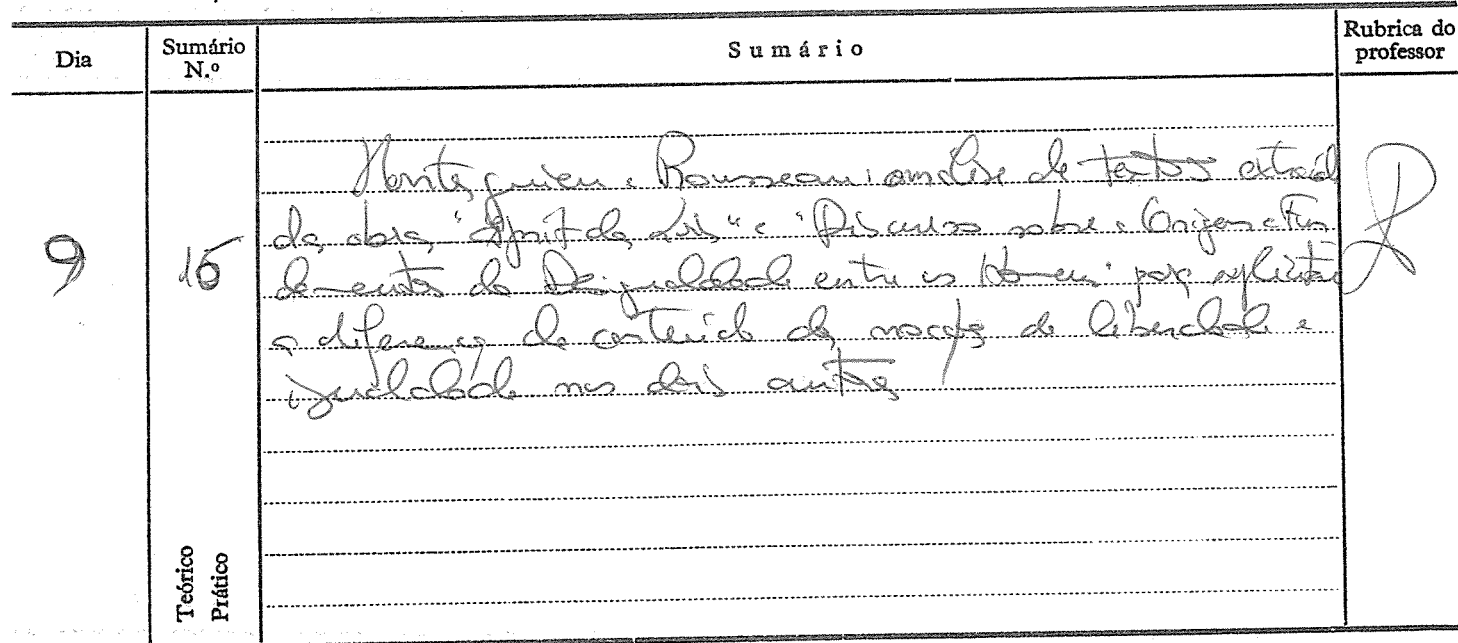 Dia
Sumário N.º
Sumário
Rubrica do professor
9
15
Montesquieu e Rousseau: análise de textos extraíd
das obras "Espírito das Leis" e "Discurso sobre a Origem e Fun
damentos da Desigualdade entre os Homens" para explicitar
a diferença de conteúdo das noções de liberdade e
igualdade nos dois autores
Teórico
Prático